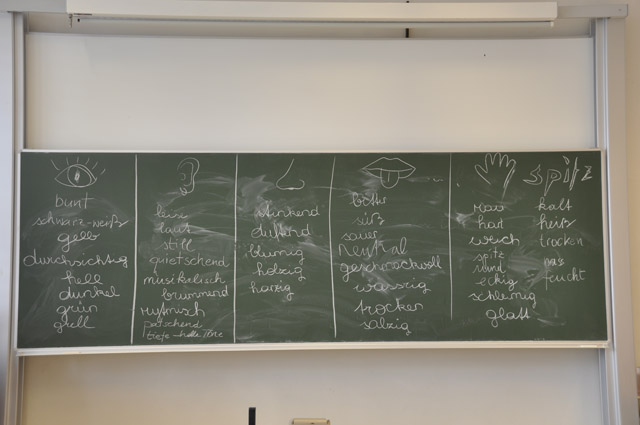 bunt
schwarz-weiß
gelb
durchsichtig
hell
dunkel
grün
grell
leise
laut
still
quietschend
musikalisch
brummend
rytmisch
patschend
tiefe - helle Töne
stinkend
duftend
blumig
holzig
harzig
bitter
süß
sauer
neutral
geschmackvoll
wässrig
trocken
salzig
spitz
rau
hart
weich
spitz
rund
eckig
schleimig
glatt
kalt
heiß
trocken
nass
feucht